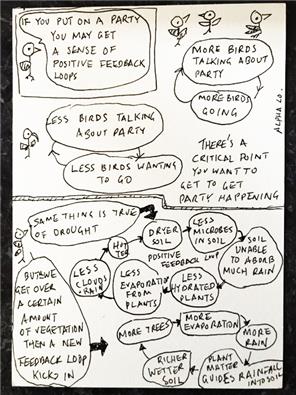 IF YOU PUT ON A PARTY
YOU MAY GET
A SENSE OF
POSITIVE FEEDBACK
LOOPS
MORE BIRDS
TALKING ABOUT
PARTY
MORE BIRDS
GOING
ALPHA LO.
LESS BIRDS TALKING
ABOUT PARTY
LESS BIRDS WANTING
TO GO
THERE'S A
CRITICAL POINT
YOU WANT TO
GET TO GET
PARTY HAPPENING
SAME THING IS TRUE
OF DROUGHT
HOTTER
DRYER
SOIL
LESS
MICROBES
IN SOIL
SOIL
UNABLE
TO ABORB
MUCH RAIN
LESS
HYDRATED
PLANTS
LESS
EVAPORATION
FROM
PLANTS
LESS
CLOUDS
+ RAIN
POSITIVE FEEDBACK LOOP
BUT WE
GET OVER
A CERTAIN
AMOUNT
OF VEGETATION
THEN A NEW
FEEDBACK LOOP
KICKS IN
MORE TREES
MORE
EVAPORATION
MORE
RAIN
PLANT
MATTER
GUIDES RAINFALL
INTO SOIL
RICHER
WETTER
SOIL